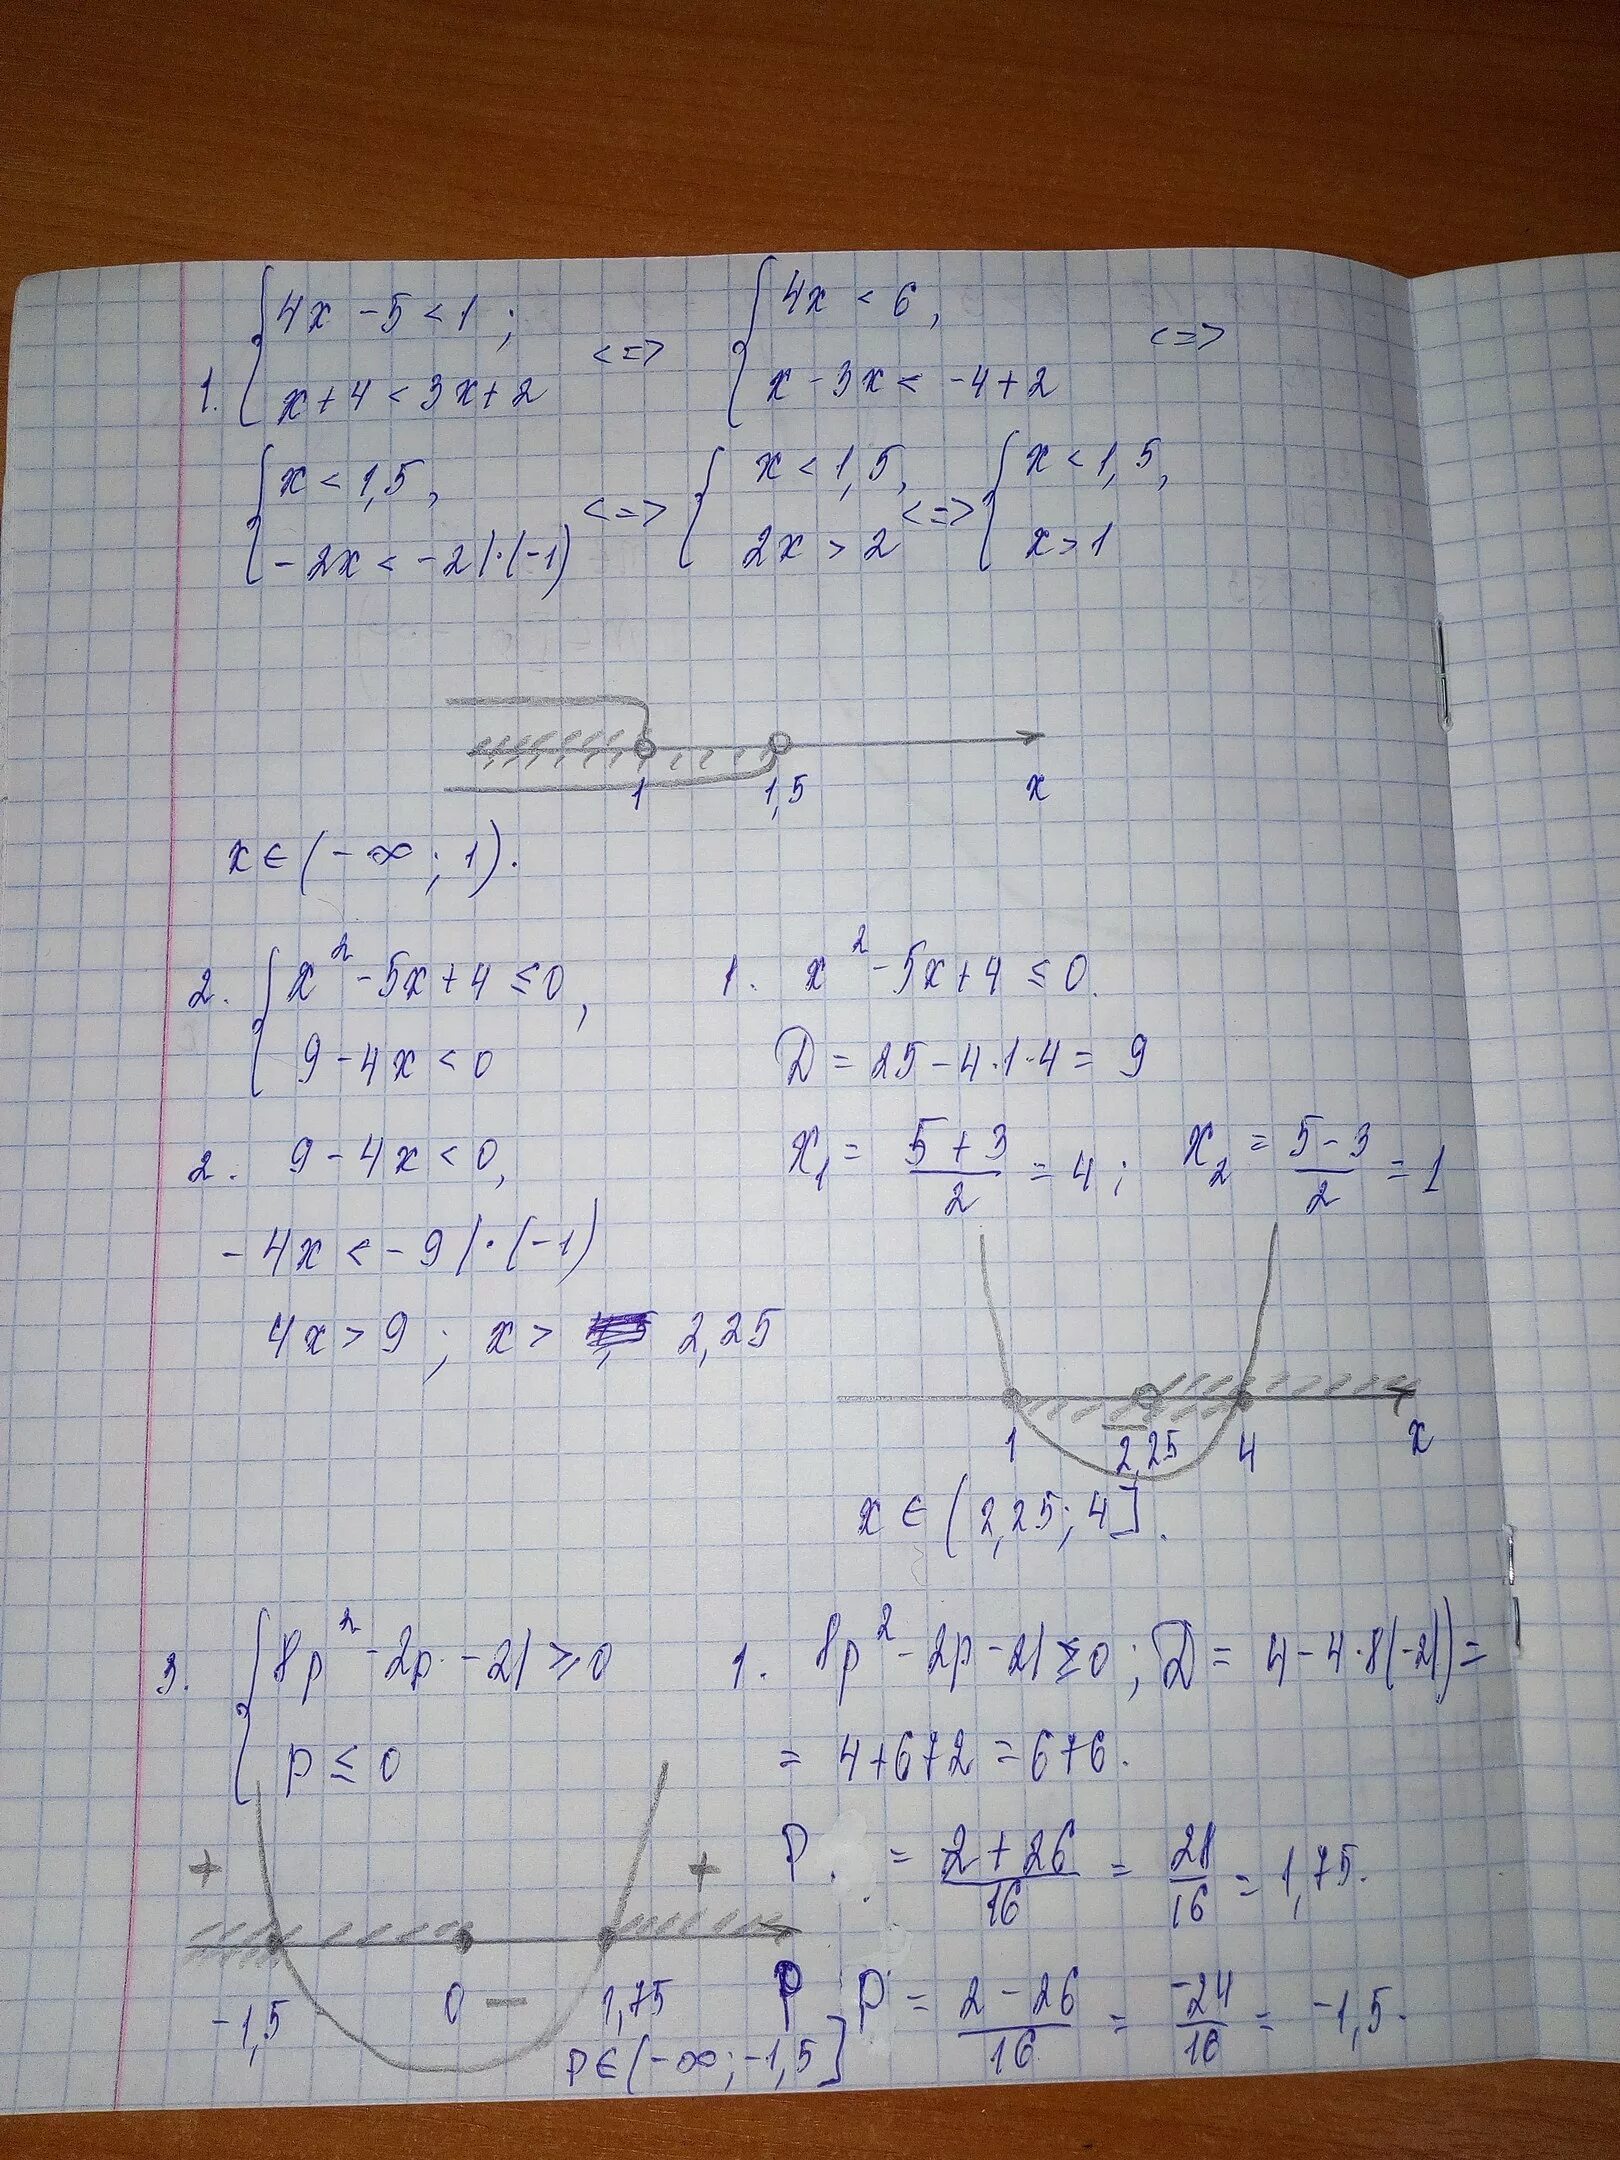 1. { 4x - 5 < 1 ; x + 4 < 3x + 2 <=> { 4x < 6, x - 3x < -4 + 2 <=>
{ x < 1,5, -2x < -2 | · (-1) <=> { x < 1,5, 2x > 2 <=> { x < 1,5, x > 1
1 1,5 x
x ∈ (-∞ ; 1).
2. { x² - 5x + 4 ≤ 0, 9 - 4x < 0
1. x² - 5x + 4 ≤ 0.
D = 25 - 4·1·4 = 9
x₁ = (5 + 3)/2 = 4 ; x₂ = (5 - 3)/2 = 1
2. 9 - 4x < 0,
-4x < -9 | · (-1)
4x > 9 ; x > 2,25
1 2,25 4 x
x ∈ (2,25; 4].
3. { 8p² - 2p - 21 ≥ 0, p ≤ 0
1. 8p² - 2p - 21 ≥ 0 ; D = 4 - 4·8(-21) =
= 4 + 672 = 676.
p = (2 + 26)/16 = 28/16 = 1,75.
p = (2 - 26)/16 = -24/16 = -1,5.
+ +
-1,5 0 - 1,75 p
p ∈ (-∞; -1,5]